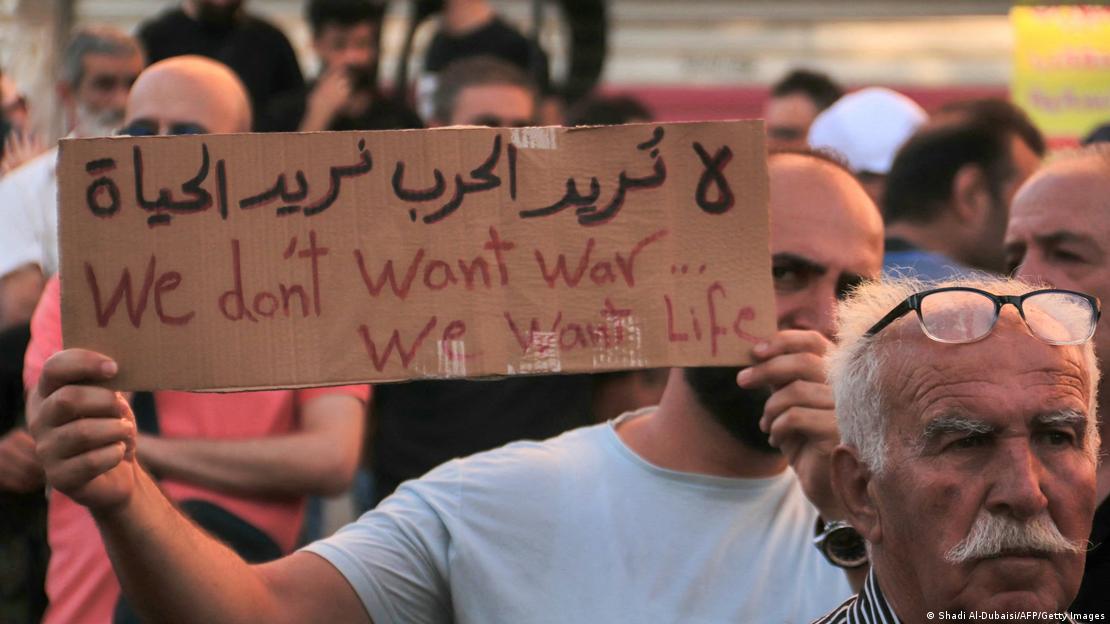 لا نُريد الحرب نريد الحياة
We don't want war ...
We want Life
Shadi Al-Dubaisi/AFP/Getty Images